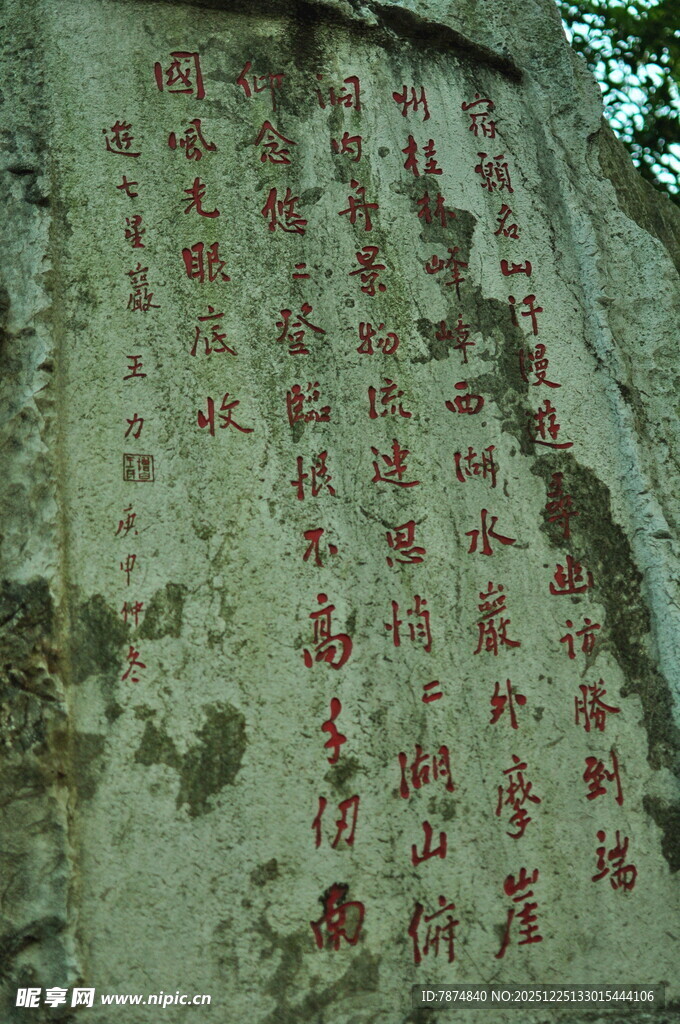 宿願名山汗漫遊尋幽訪勝到端
州桂林峰崿西湖水巖外摩崖
洞內舟景物流連思悄〻湖山俯
仰念悠〻登臨恨不高千仞南
國風光眼底收
遊七星巖 王力
庚申仲冬
昵享网 www.nipic.cn
ID:7874840 NO:20251225133015444106